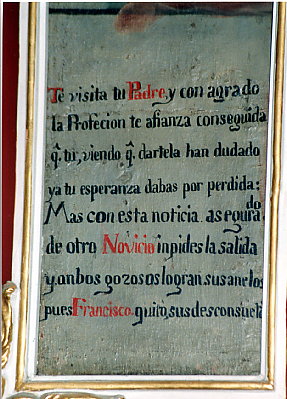 Te visita tu Padre, y con agrado
la Profecion te afianza conseguida
q̃. tu, viendo q̃. dartela han dudado
ya tu esperanza dabas por perdida:
Mas con esta noticia asegurado
de otro Novicio inpides la salida
y anbos gozosos logran sus anelos
pues Francisco quito, sus desconsuelos